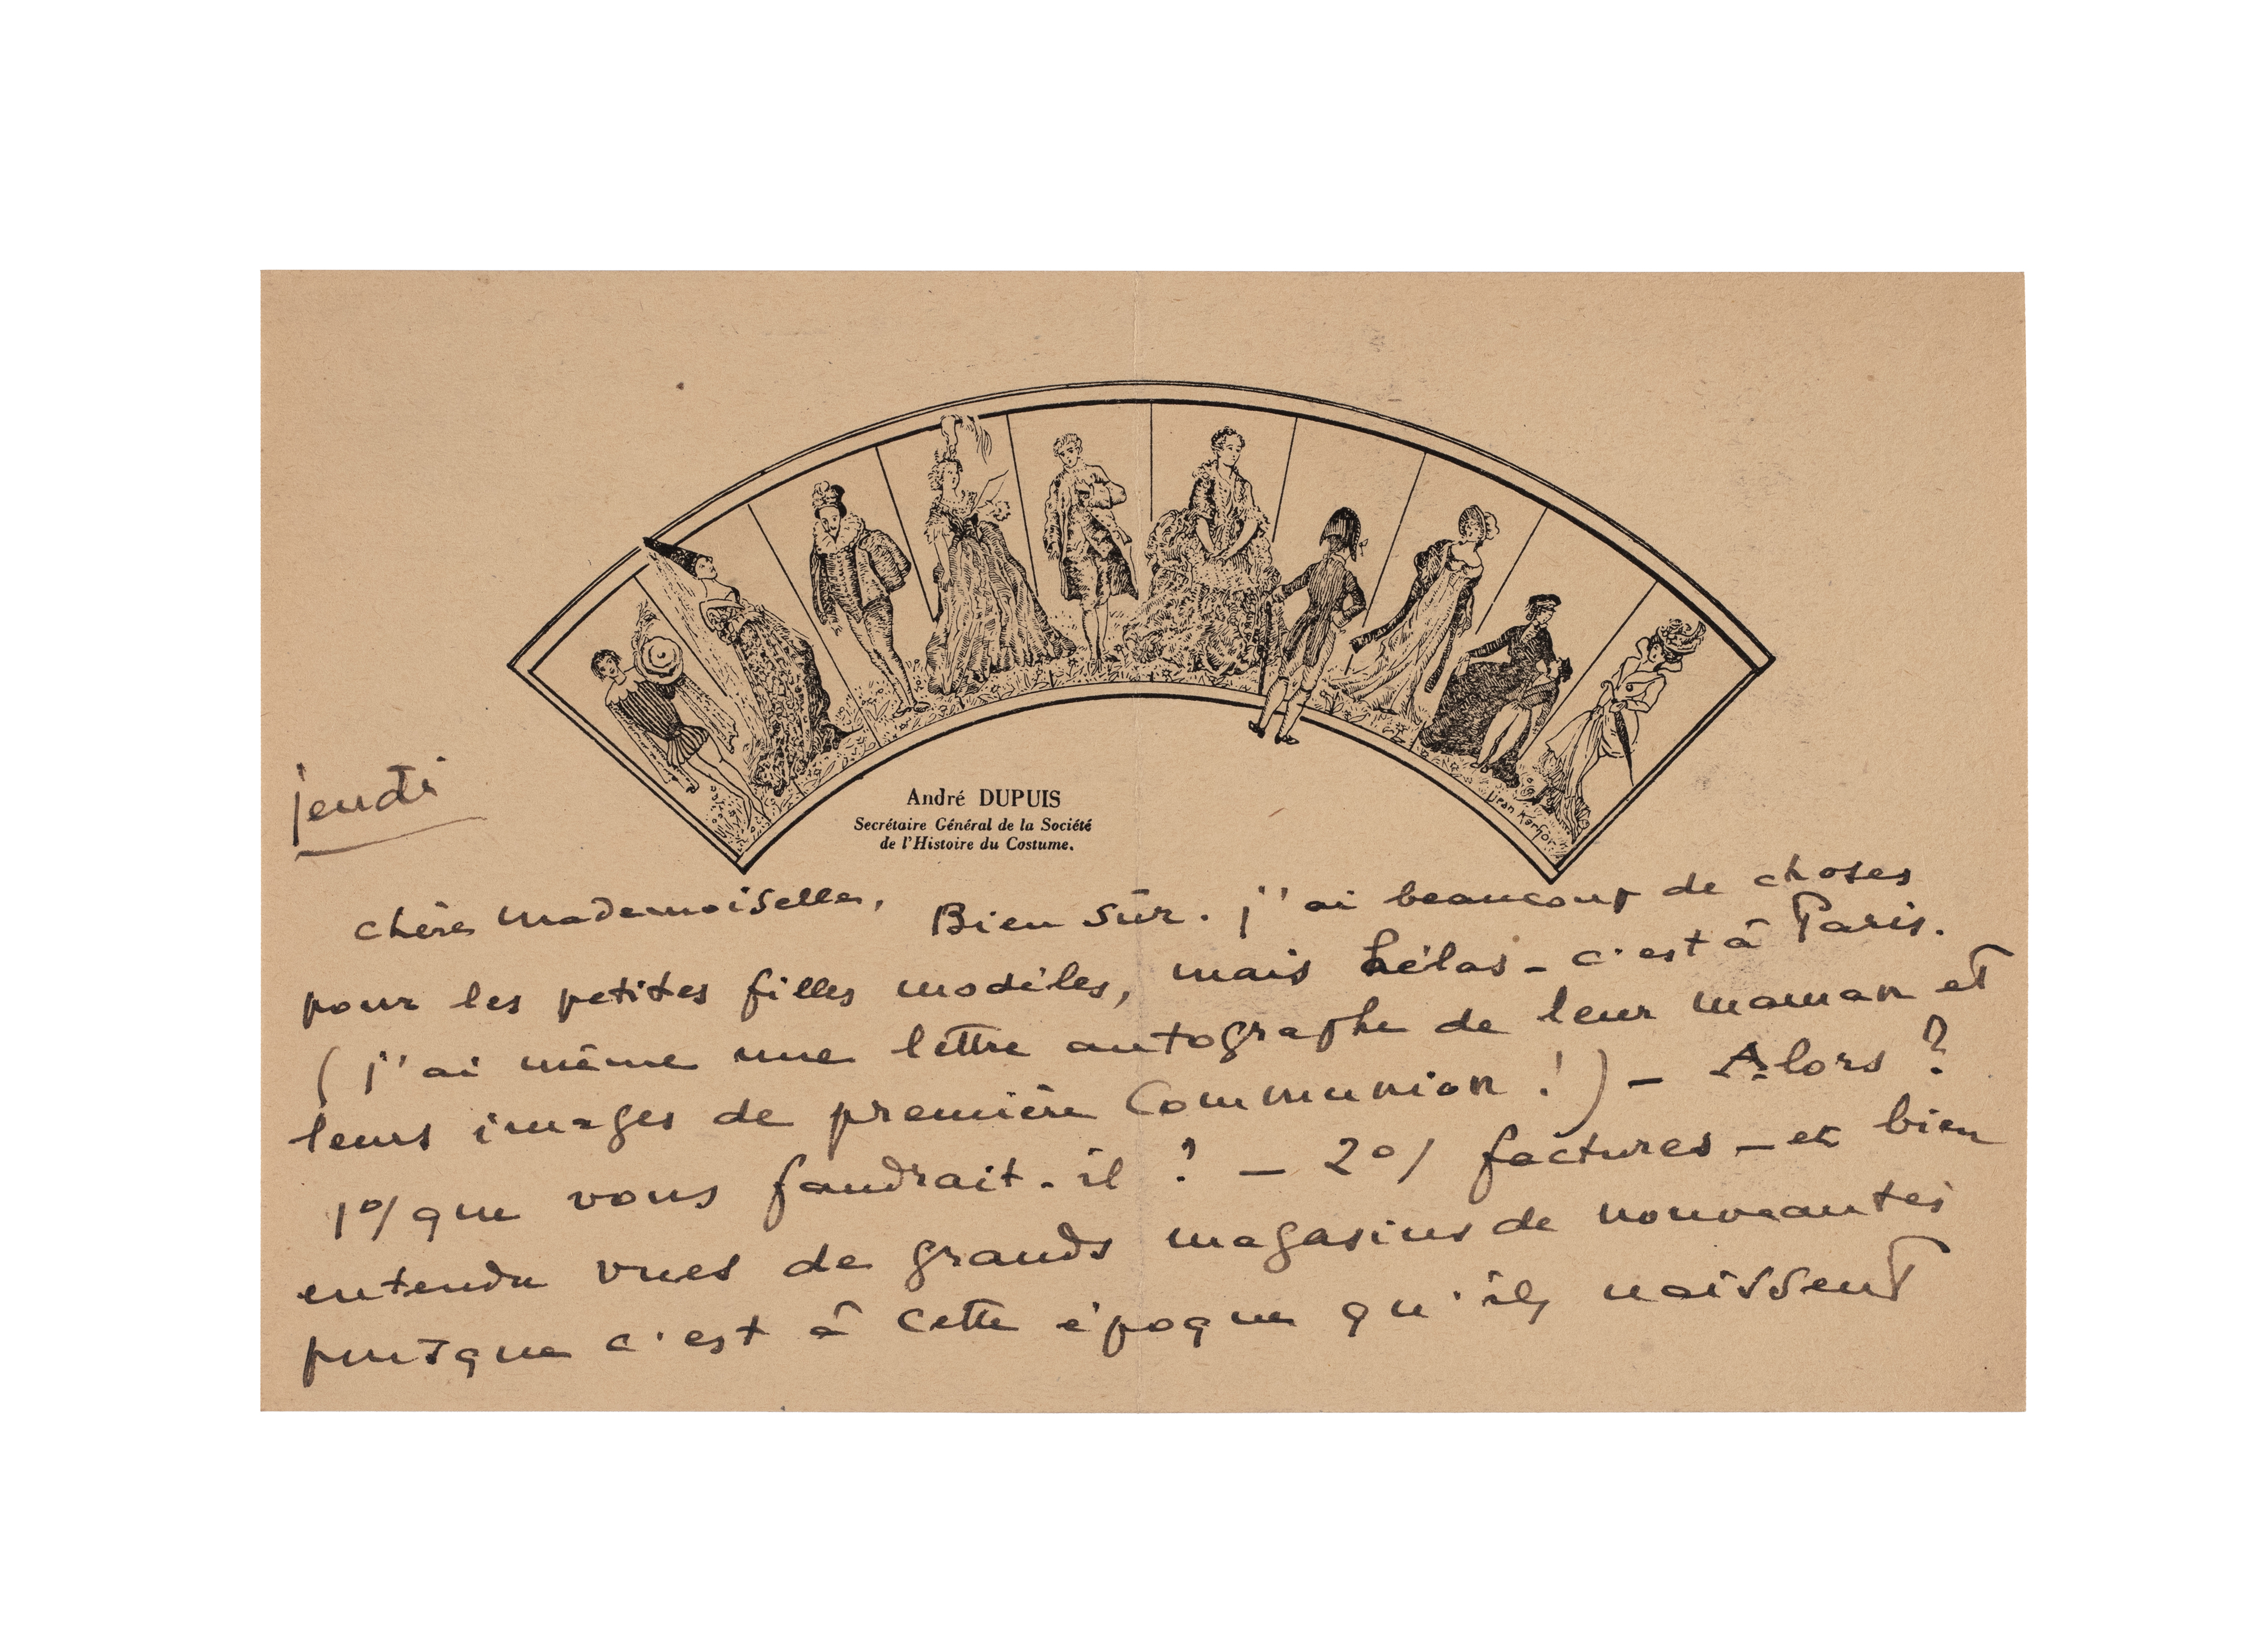 André DUPUIS
Secrétaire Général de la Société
de l'Histoire du Costume.
jeudi
chère Mademoiselle, Bien sûr. j'ai beaucoup de choses
pour les petites filles modèles, mais hélas - c'est à Paris.
( j'ai même une lettre autographe de leur maman et
leurs images de première Communion ! ) - Alors ?
1°/ que vous faudrait-il ? - 2°/ factures - et bien
entendu vues de grands magasins de nouveautés
puisque c'est à cette époque qu'ils naissent